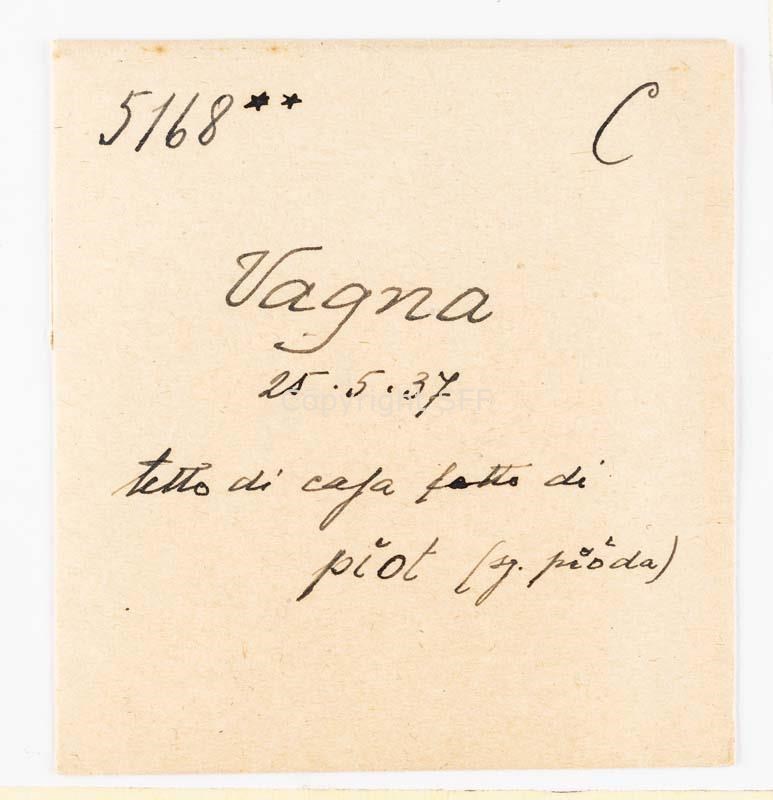 5168** C
Vagna
25.5.37
Copyright SFR
tetto di casa fatto di
pi̯ǫt (sg. pi̯ǫda)